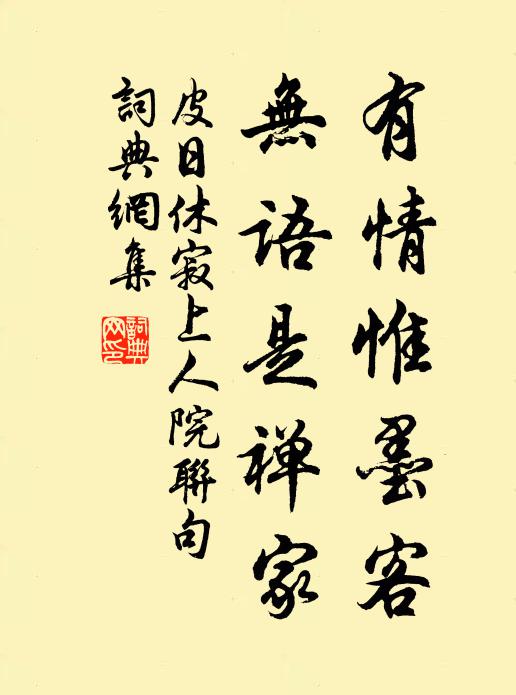 有情惟墨客
無語是禅家
皮日休寂上人院聯句
詞典網集
詞典
网印